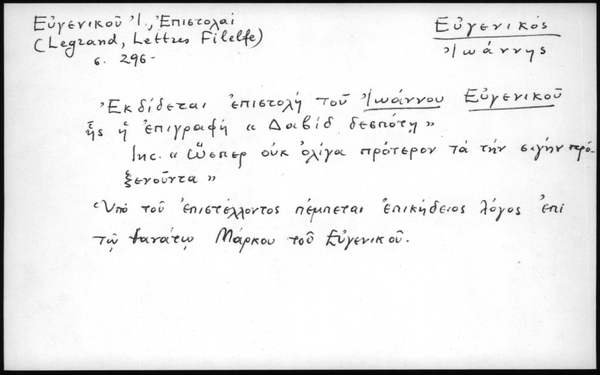 Εὐγενικοῦ Ἰ., Ἐπιστολαί
(Legrand, Lettres Filelfe)
σ. 296-
Εὐγενικός
Ἰωάννης
Ἐκδίδεται ἐπιστολὴ τοῦ Ἰωάννου Εὐγενικοῦ
ἧς ἡ ἐπιγραφὴ « Δαβὶδ δεσπότῃ »
Inc. « Ὥσπερ οὐκ ὀλίγα πρότερον τὰ τὴν σιγὴν πρό-
ξενοῦντα »
Ὑπὸ τοῦ ἐπιστέλλοντος πέμπεται ἐπικήδειος λόγος ἐπὶ
τῷ θανάτῳ Μάρκου τοῦ Εὐγενικοῦ.